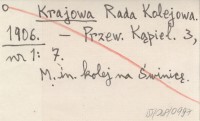 Krajowa Rada Kolejowa.
1906. — Przew. Kąpiel. 3,
nr 1: 7.
M. in. kolej na Świnicę.